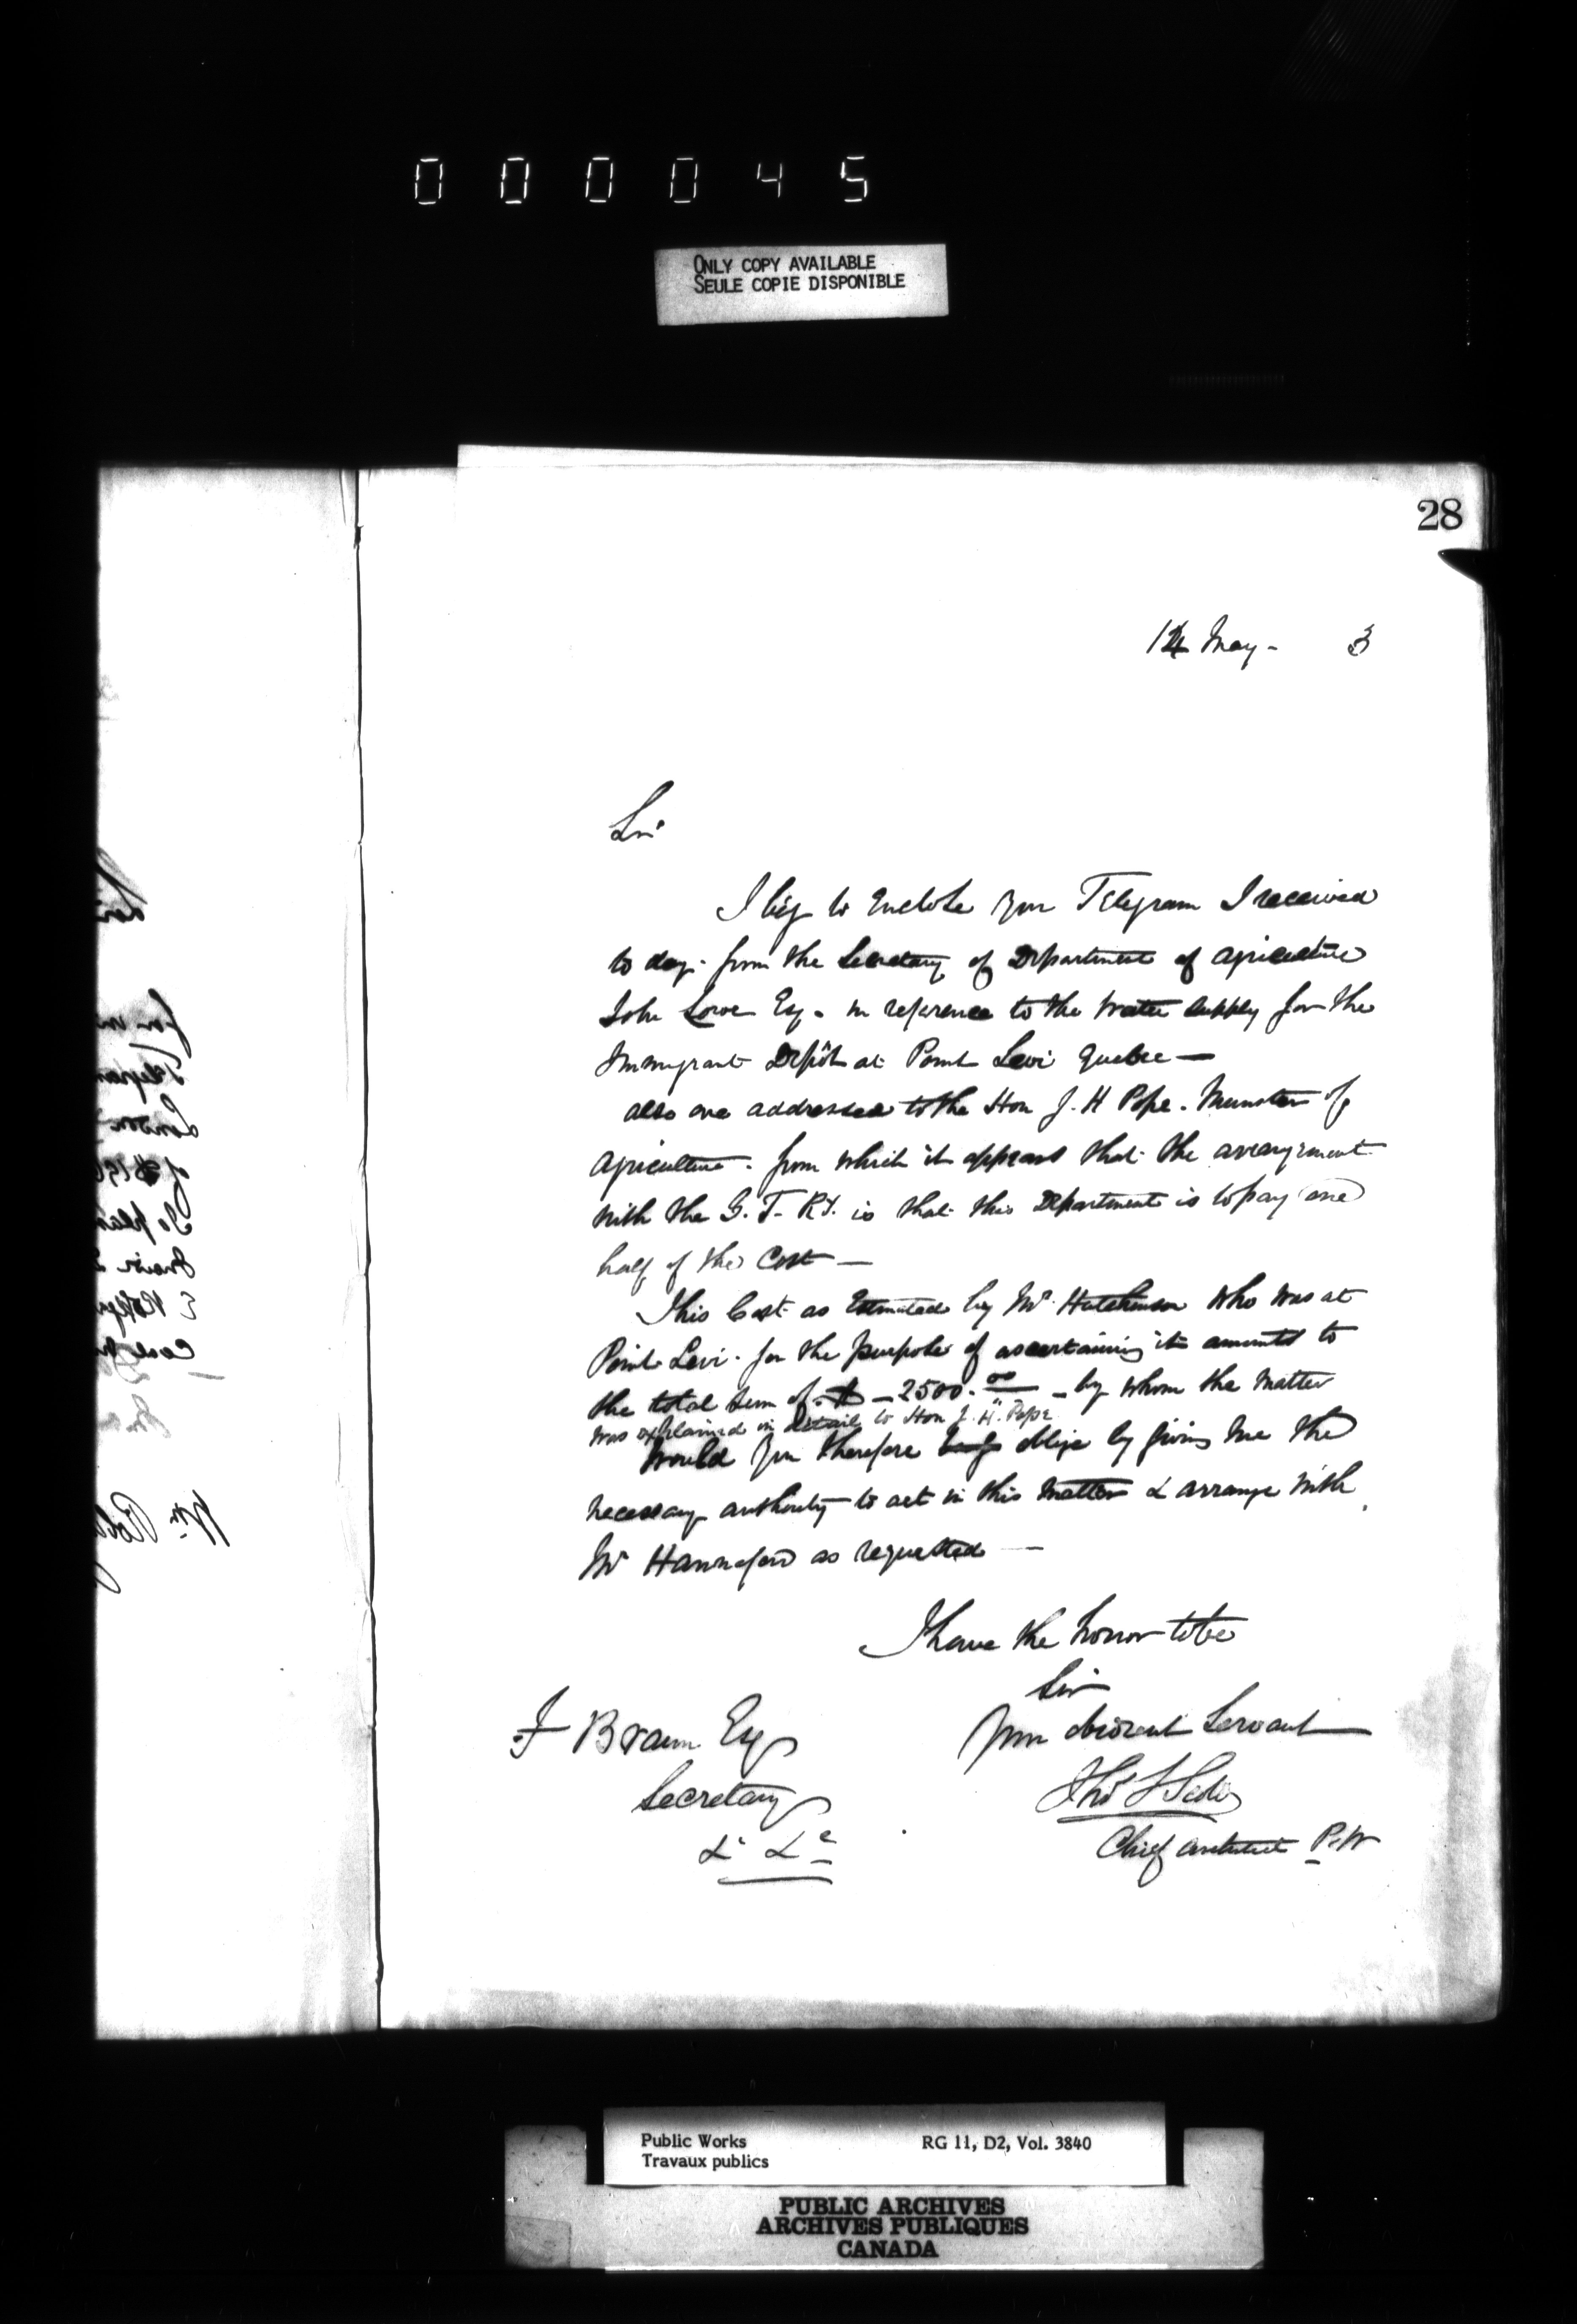 000045
ONLY COPY AVAILABLE
SEULE COPIE DISPONIBLE
28
14 May - 3
Sir
I beg to Enclose you Telegram I received
to day. from the Secretary of Department of Agriculture
John Lowe Esq. in reference to the water supply for the
Immigrant Depôt at Point Levi Quebec —
also one addressed to the Hon J. H Pope. Minister of
Agriculture. from which it appears that the arrangement
with the G. T. Ry. is that this Department is to pay one
half of the cost —
This Cost as Estimated by Mr Hutchinson who was at
Point Levi. for the purpose of ascertaining it amounts to
the total sum of $ - 2500.00 - by whom the matter
was explained in detail to Hon J. H. Pope
Would you therefore oblige by giving me the
necessary authority to act in this matter & arrange with
Mr Hannaford as requested —
I have the honor to be
Sir
Your obedient Servant
F Braun Esq
Secretary
& &c
Thos S Scott
Chief Architect P. W
for
Wm
Public Works
Travaux publics
RG 11, D2, Vol. 3840
PUBLIC ARCHIVES
ARCHIVES PUBLIQUES
CANADA